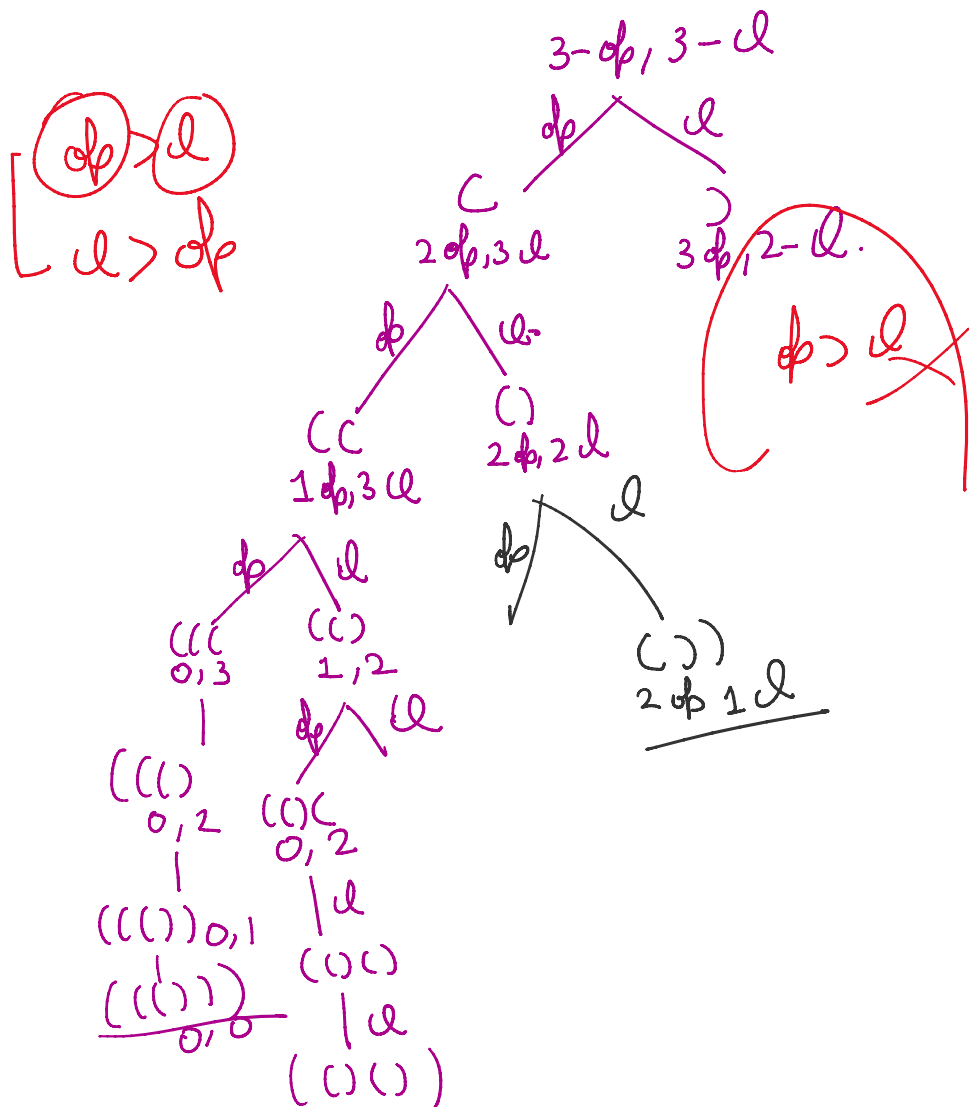 3-op, 3-cl
op cl
op > cl
cl > op
(
2 op, 3 cl
)
3 op, 2-cl.
op > cl
op cl-
((
1 op, 3 cl
()
2 op, 2 cl
op cl
op cl
(((
0,3
(()
1,2
())
2 op 1 cl
op cl
((()
0,2
(()(
0,2
cl
((())
0,1
(()()
((()))
0,0
cl
(()())